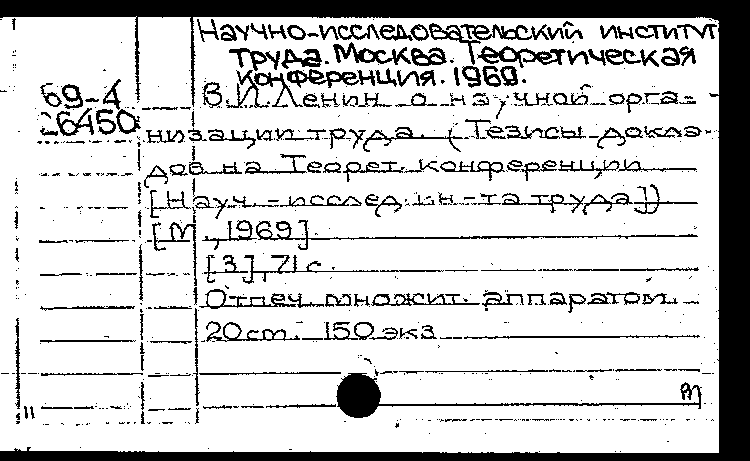 Научно-исследовательский институт
труда. Москва. Теоретическая
конференция. 1969.
69-4
26450
В.И.Ленин о научной орга-
низации труда. (Тезисы докла-
дов на Теорет. конференции
[Науч.-исслед. ин-та труда])
[М., 1969]
[3], 71 с.
Отпеч. множит. аппаратом.
20 cm. 150 экз